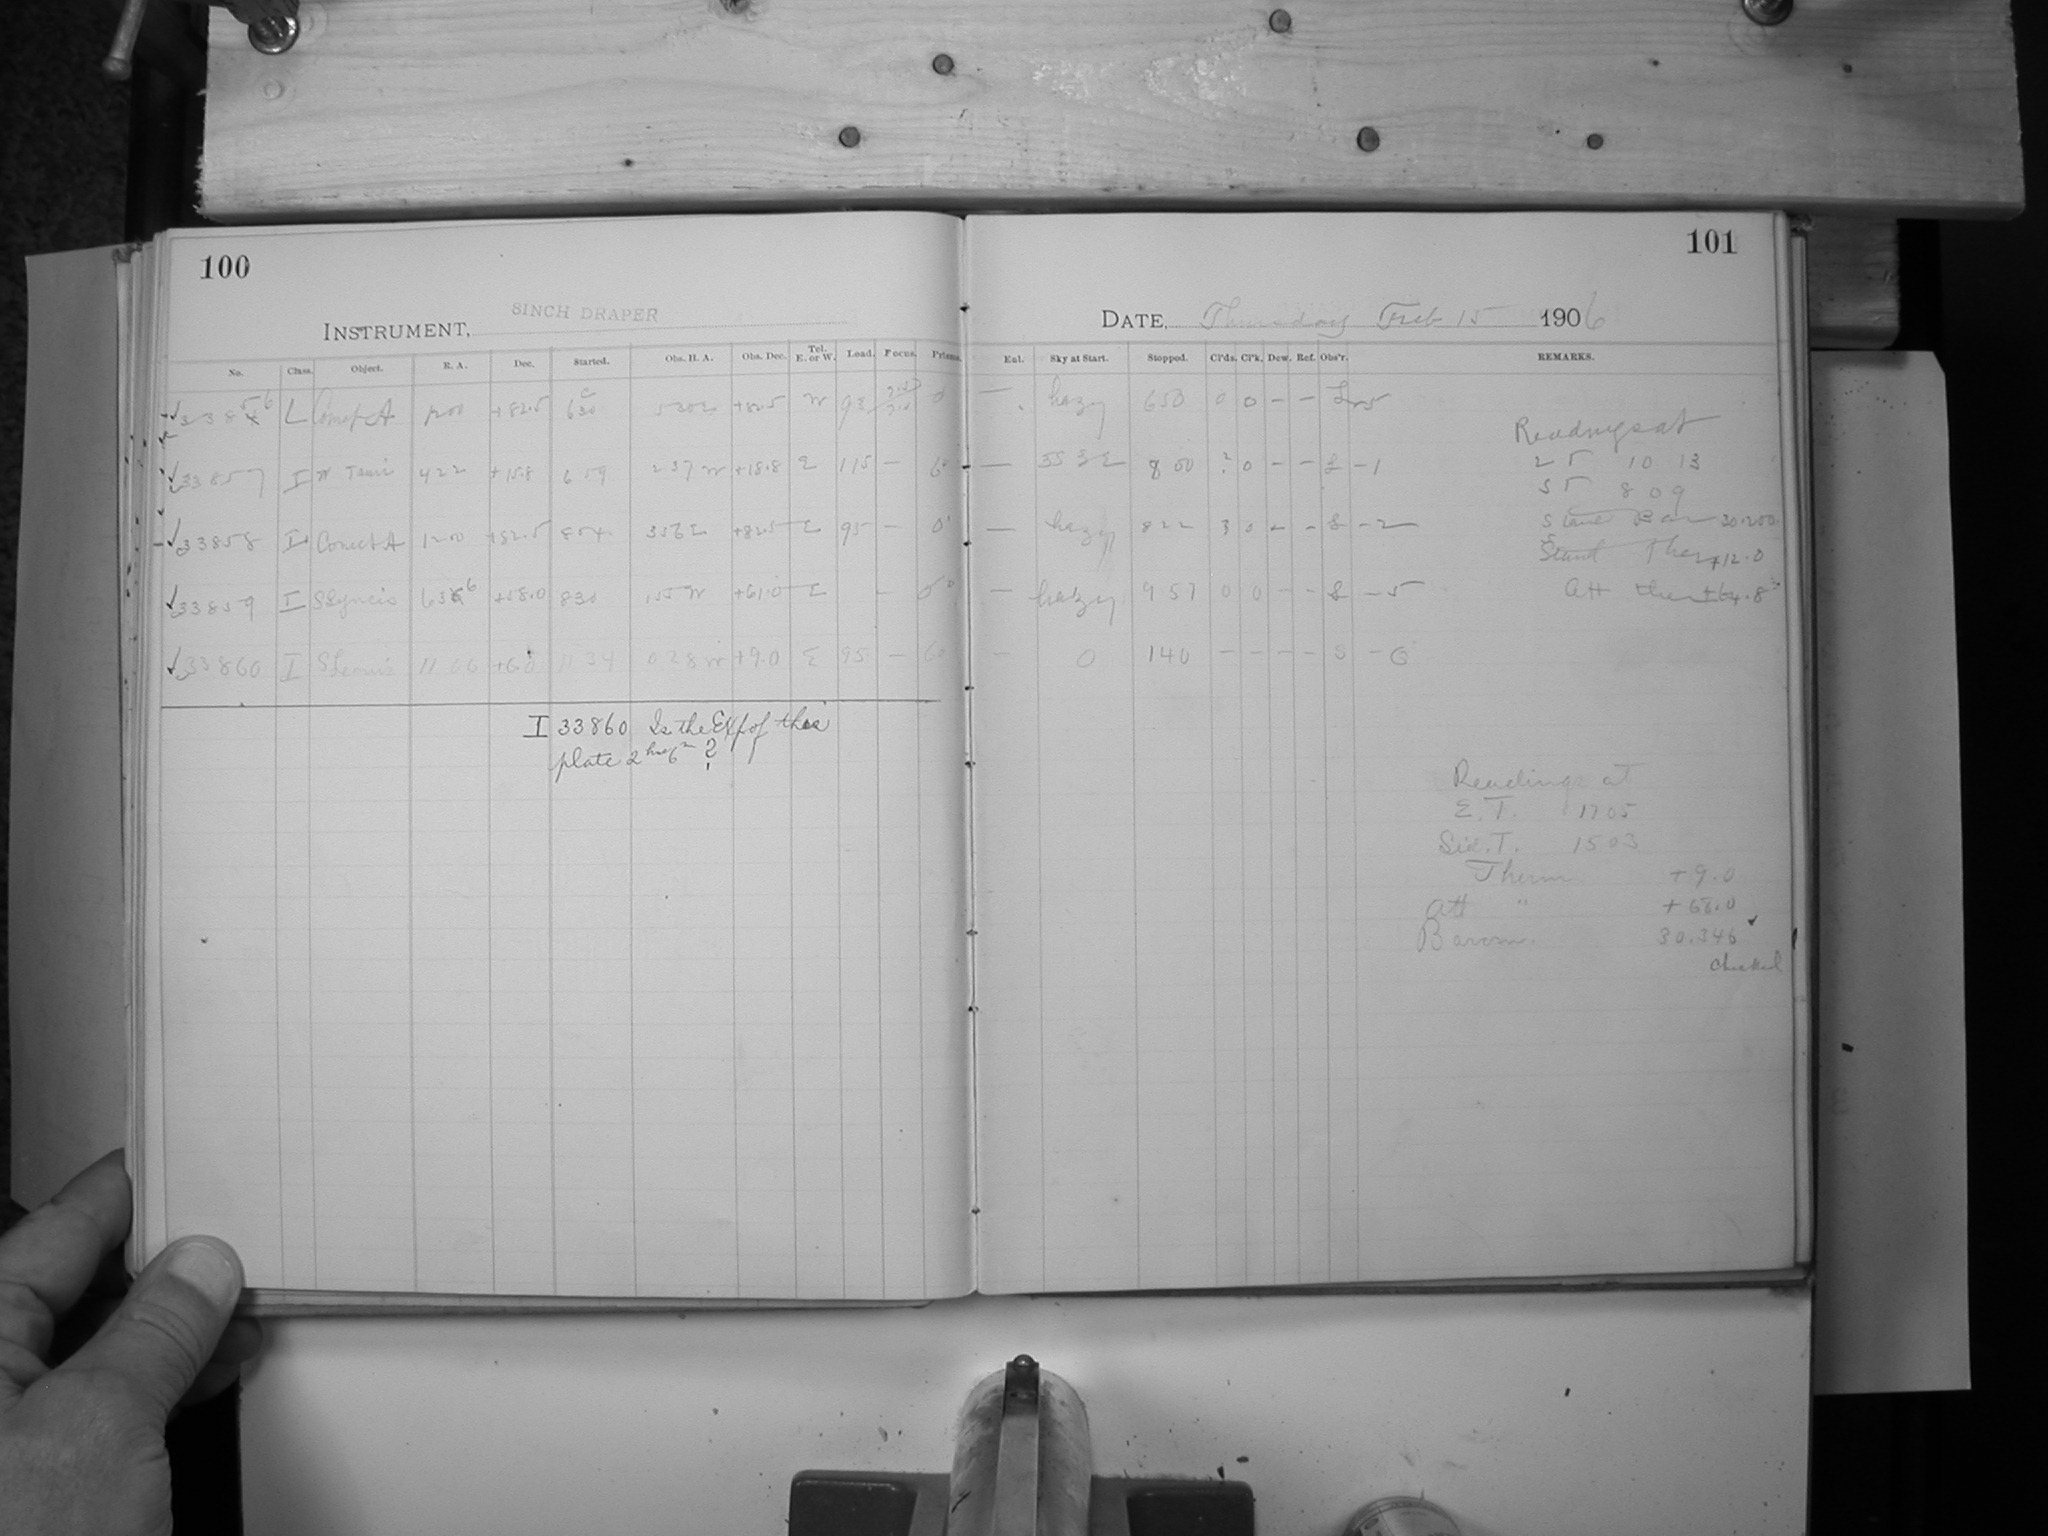 100
101
8INCH DRAPER
INSTRUMENT,
DATE, Thursday Feb 15 1906
No. Class. Object. R. A. Dec. Started. Obs. H. A. Obs. Dec. Tel. E. or W. Load. Focus. Prisms.
Ent. Sky at Start. Stopped. Cl'ds. Cl'k. Dew. Ref. Obs'r. REMARKS.
L 1200 +82.5 630 +82.5 W 93 0 — hazy 653 0 0 – –
33857 I π Tauri 422 +15.8 659 237 W +18.8 E 115 – 60 — 8 00 ? 0 – – – 1
33858 I 1200 +82.5 804 356 E +82.5 E 95 – 0 — hazy 822 3 0 – – – 2
33859 I S Lyncis +58.0 830 155 W +61.0 E – — hazy 957 0 0 – – – 5
33860 I S Leonis 11 06 +6.0 11 34 0 28 W +9.0 E 95 – 60 – 0 140 – – – – S – 6
Readings at
10 13
8 09
Stand Bar 30.200
Stand Ther +12.0
Att ther +64.8
I 33860 Is the Exp of this
plate 2 hrs 6 m ?
Readings at
E. T. 1705
Sid. T. 1503
Therm +9.0
Att " +68.0
Barom. 30.346
checked